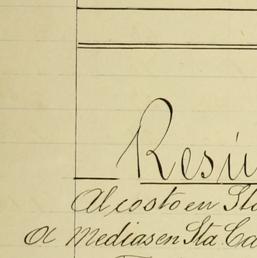 Resú
Al costo en Sta
a Medias en Sta. Ca